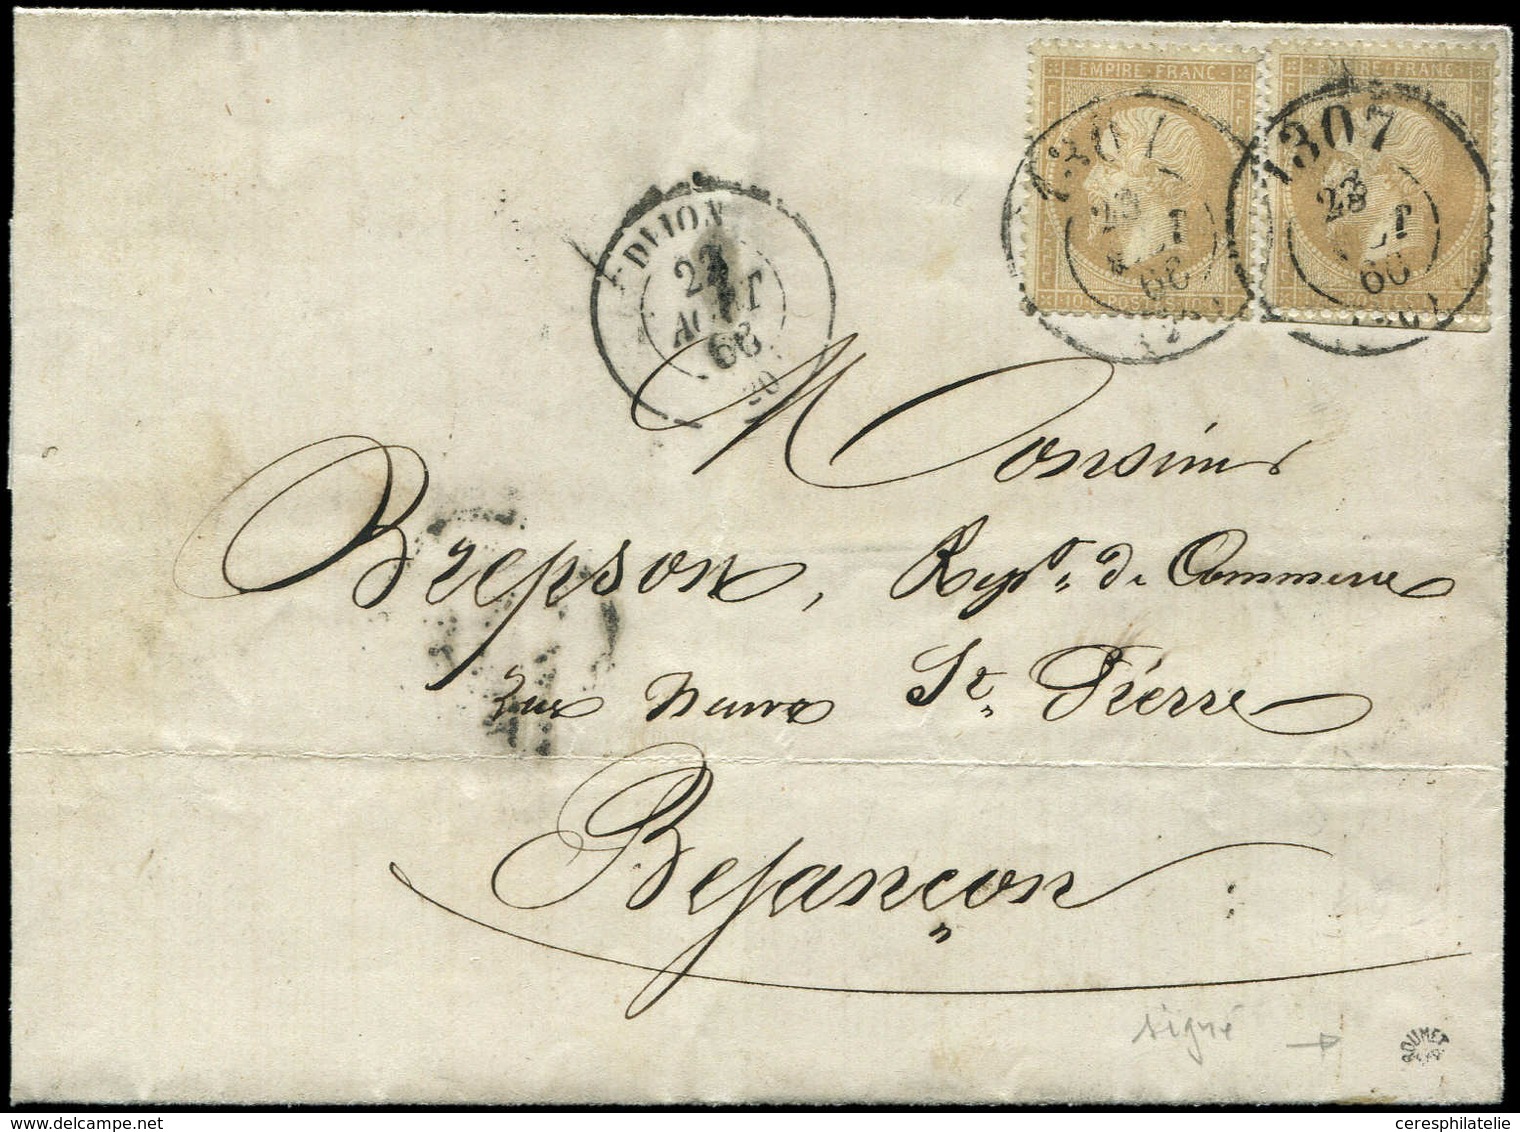 EMPIRE FRANC
EMPIRE FRANC
1307
1307
23
23
66
22
AOUT
68
10 POSTES 10
Monsieur
Brepson, Repst. de Commerce
rue Neuve St. Pierre
Besançon
signé
ROUMET
www.delcampe.net
ceresphilatelie